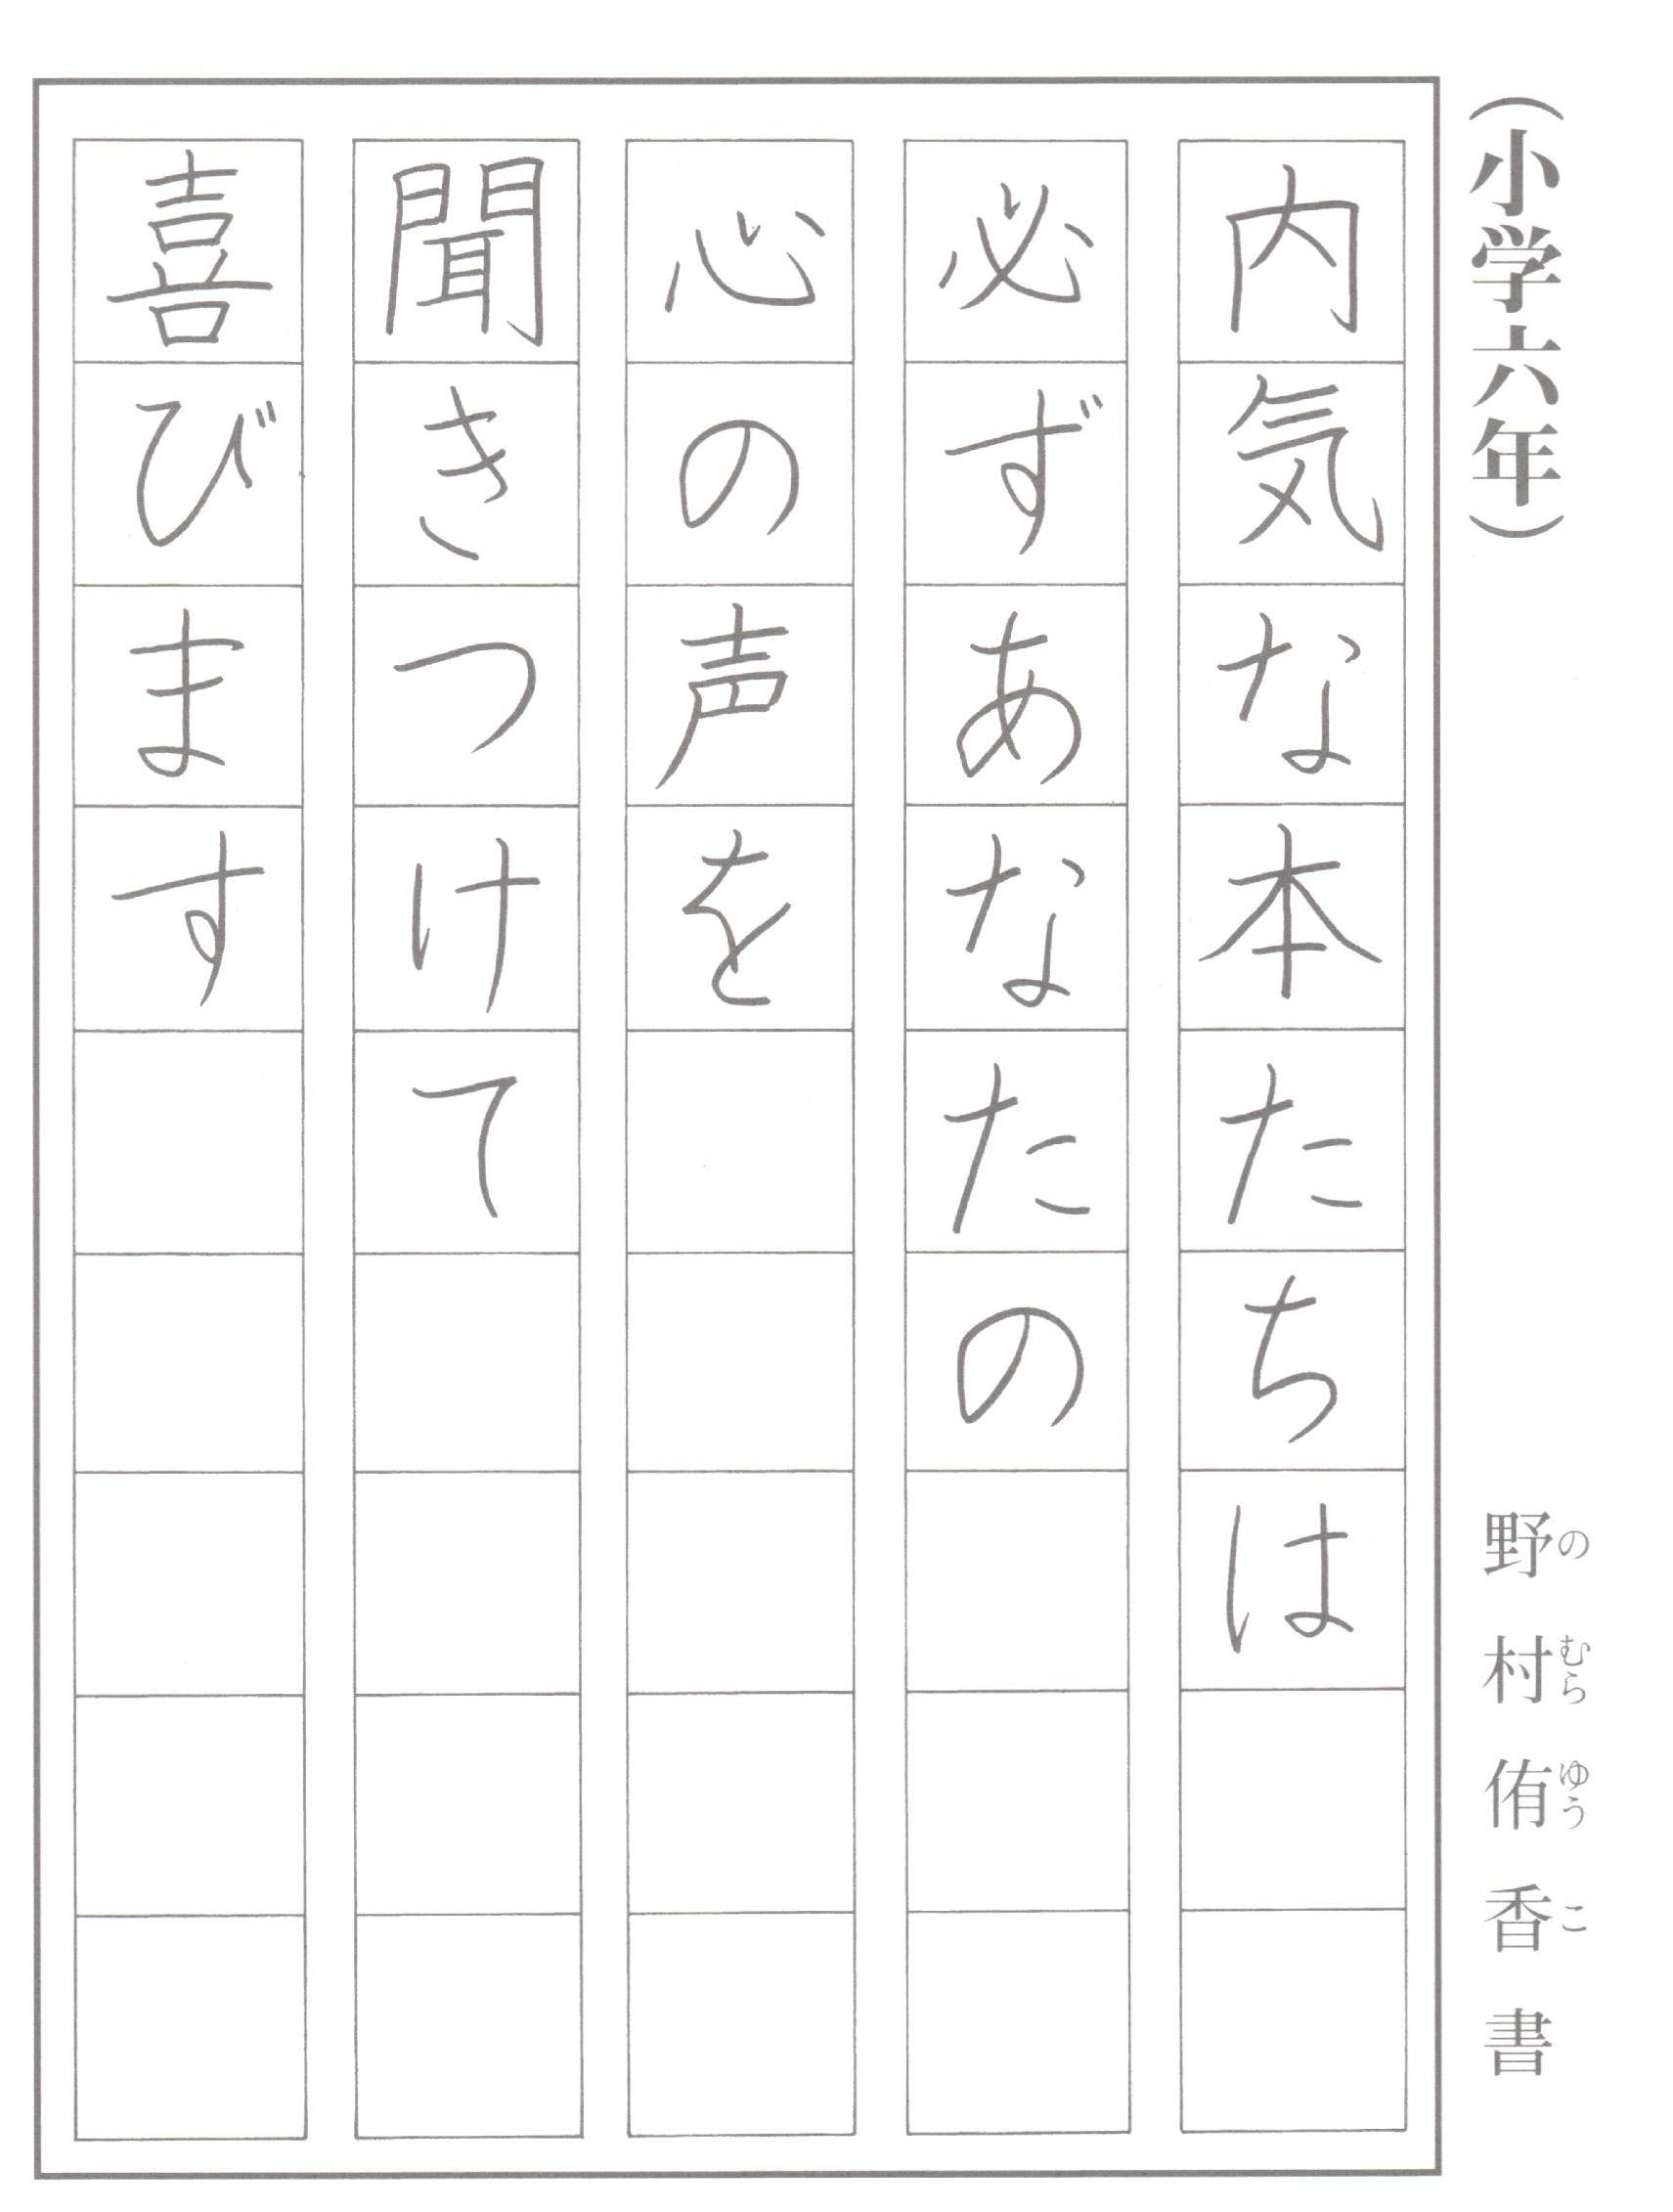 (小学六年)
野村侑香書
の むら ゆう こ
内気な本たちは
必ずあなたの
心の声を
聞きつけて
喜びます